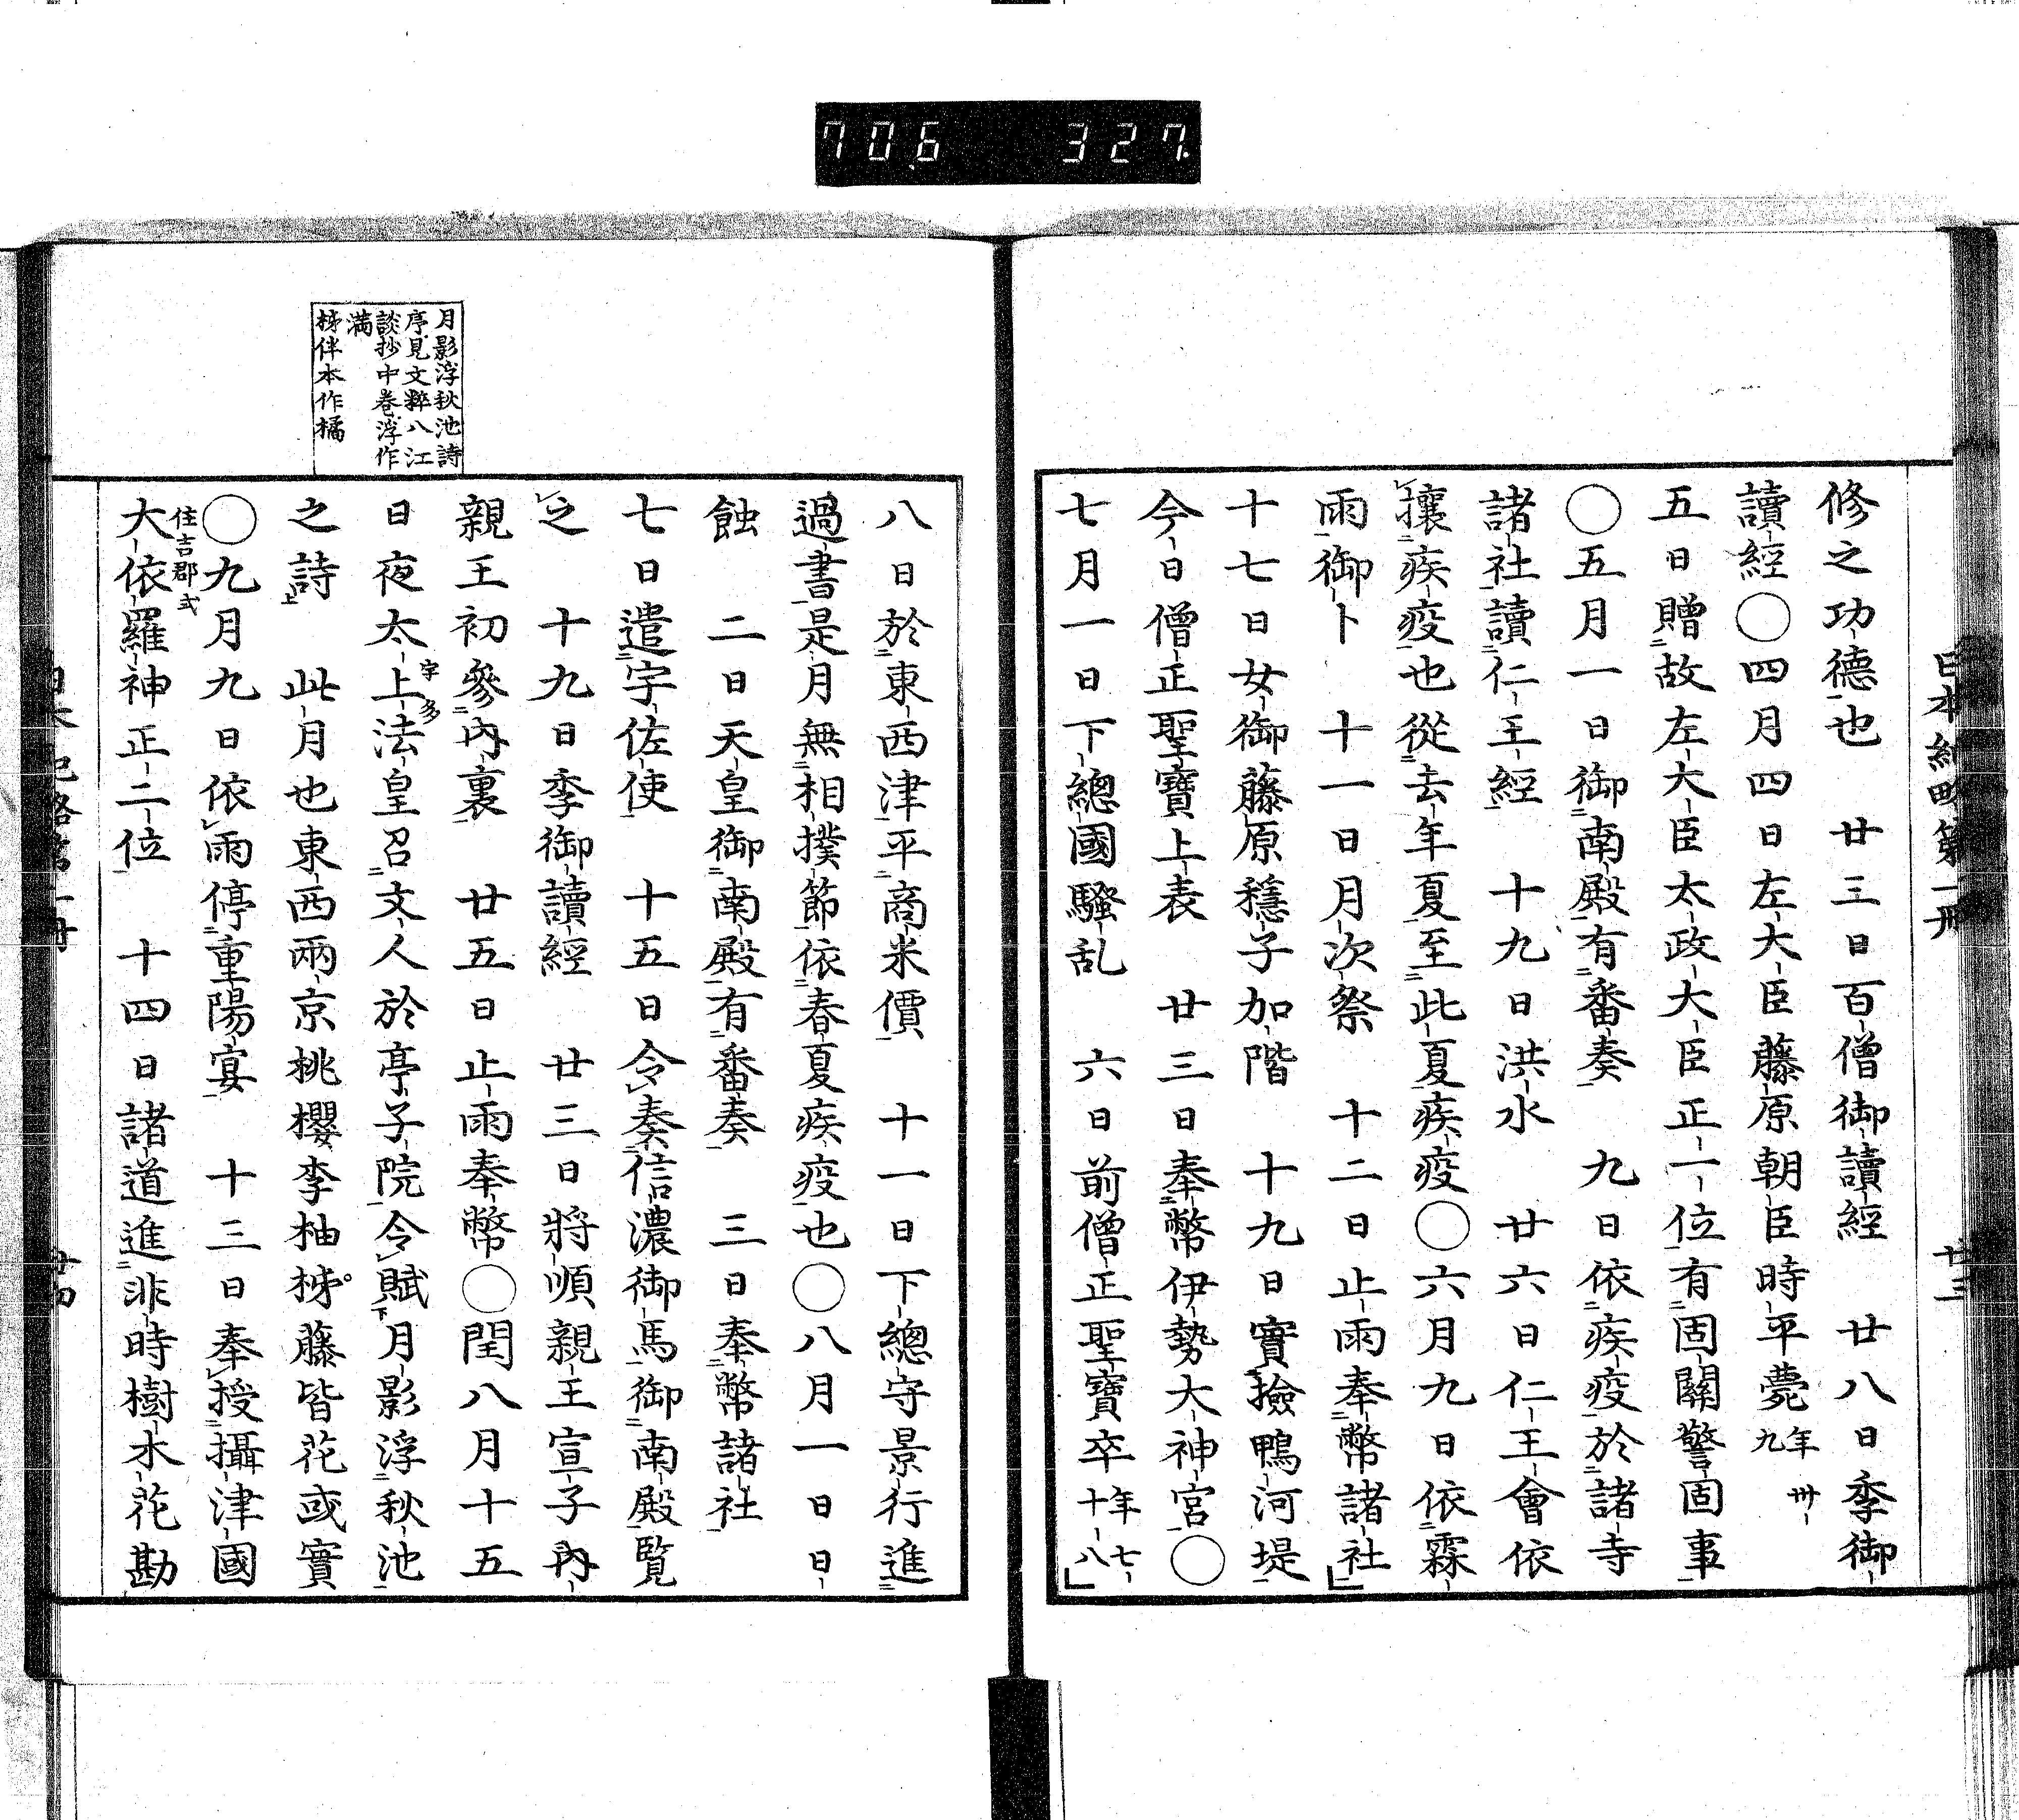 706 327
日本紀略第一冊 廿三
修之功德也 廿三日百僧御讀經 廿八日季御
讀經〇四月四日左大臣藤原朝臣時平薨年卅九
五日贈故左大臣太政大臣正一位有固關警固事
〇五月一日御南殿有番奏 九日依疾疫於諸寺
諸社讀仁王經 十九日洪水 廿六日仁王會依
攘疾疫也從去年夏至此夏疾疫〇六月九日依霖
雨御卜 十一日月次祭 十二日止雨奉幣諸社
十七日女御藤原穩子加階 十九日實撿鴨河堤
今日僧正聖寶上表 廿三日奉幣伊勢大神宮〇
七月一日下總國騷乱 六日前僧正聖寶卒年七十八
月影浮秋池詩
序見文粹八江
談抄中卷浮作
滿
柹伴本作橘
八日於東西津平商米價 十一日下總守景行進
過書是月無相撲節依春夏疾疫也〇八月一日日
蝕 二日天皇御南殿有番奏 三日奉幣諸社
七日遣宇佐使 十五日令奏信濃御馬御南殿覽
之 十九日季御讀經 廿三日將順親王宣子內
親王初參內裏 廿五日止雨奉幣〇閏八月十五
日夜太上法皇召文人於亭子院令賦月影浮秋池
宇多
之詩 此月也東西兩京桃櫻李柚柹藤皆花或實
〇九月九日依雨停重陽宴 十三日奉授攝津國
住吉郡式
大依羅神正二位 十四日諸道進非時樹木花勘